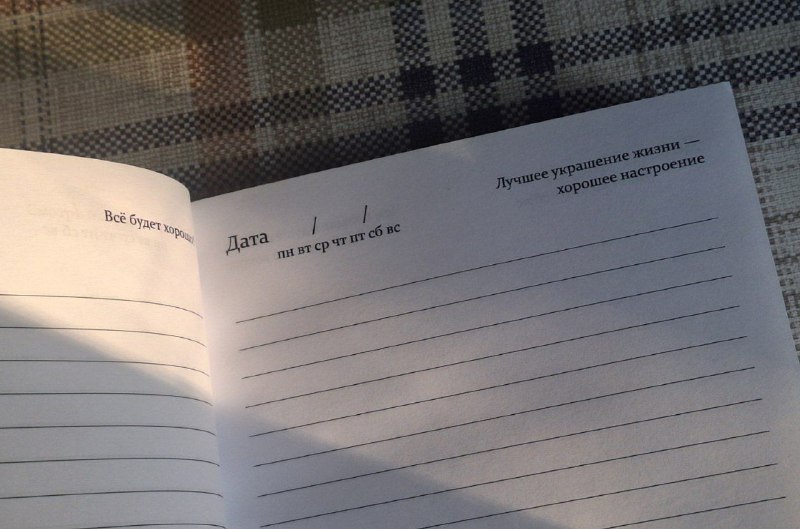 Всё будет хорошо
Дата / /
пн вт ср чт пт сб вс
Лучшее украшение жизни —
хорошее настроение